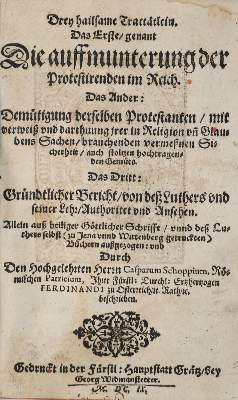 Drey hailsame Tractätlein.
Das Erste / genant
Die auffmunterung der
Protestirenden im Reich.
Das Ander:
Demütigung derselben Protestanten / mit
verweiß vnd darthuung jrer in Religion vñ Glau
bens Sachen / brauchenden vermeßnen Si-
cherheit / auch stoltzen hochtragen-
den Gemüts.
Das Dritt:
Gründtlicher Bericht / von deß Luthers vnd
seiner Lehr / Authoritet vnd Ansehen.
Allein auß heiliger Göttlicher Schrifft / vnnd deß Lu-
thers selbst / zu Jena vnnd Wittenberg getruckten
Büchern außgezogen: vnd
Durch
Den Hochgelehrten Herrn Casparum Schoppium, Rö-
mischen Patricium, Ihrer Fürstl: Durchl: Ertzhertzogen
FERDINANDI zu Osterreich &c. Rathe,
beschriben.
Gedruckt in der Fürstl: Hauptstatt Grätz / bey
Georg Widmanstetter.